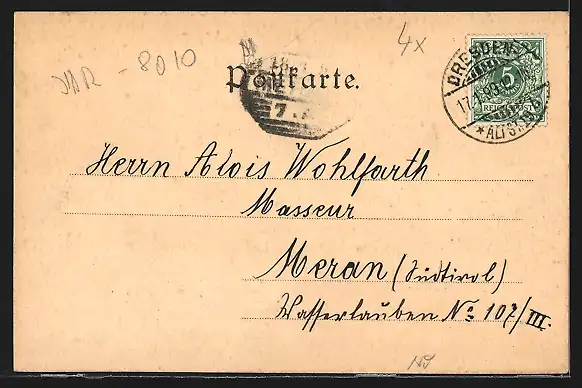 4x
JAR - 8010
Postkarte.
DRESDEN
5
REICHSPOST
17.1.99.
*ALTST.
7.
Herrn Alois Wohlfarth
Masseur
Meran (Südtirol)
Wasserlauben No 107/III.